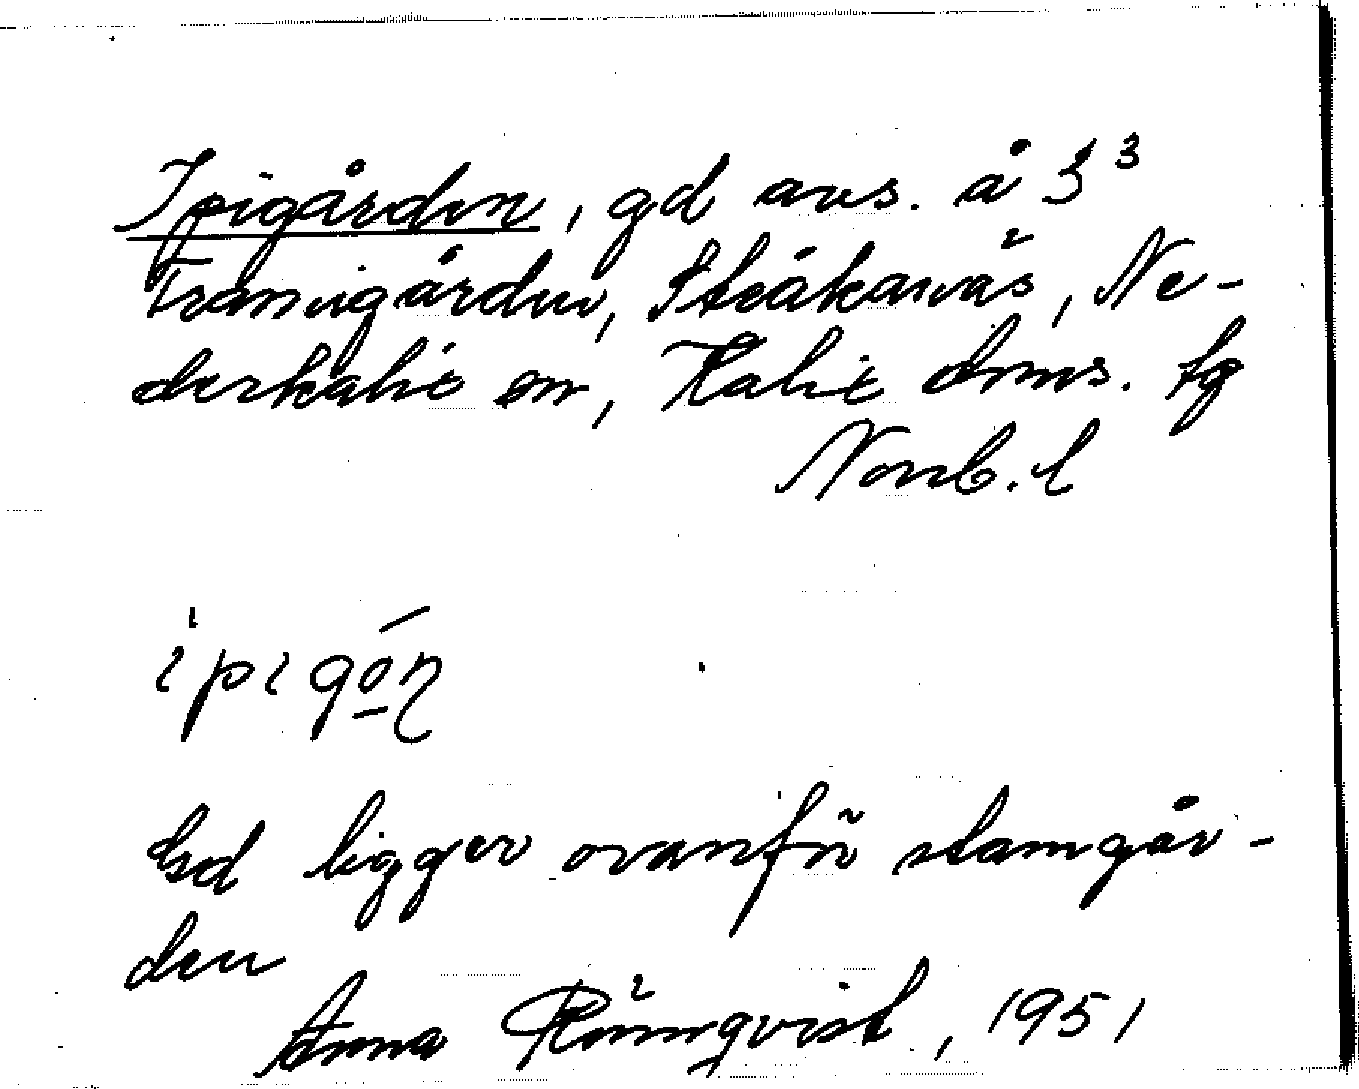 Ipigården, gd avs. å 3³
Framigården, Stråkanäs, Ne-
derkalix sn, Kalix doms. tg
Norrb. l
ipigó̱ṇ
Gd ligger ovanför stamgår-
den
Anna Rönnqvist, 1951